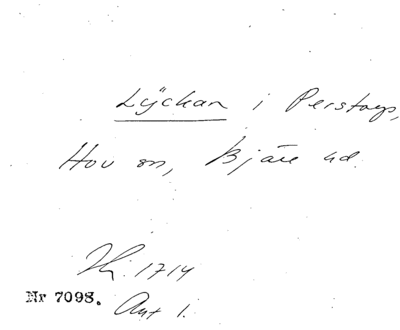 Lÿckan i Perstorp,
Hov sn, Bjäre hd.
Jh. 1714
Nr 7098. Ant 1.